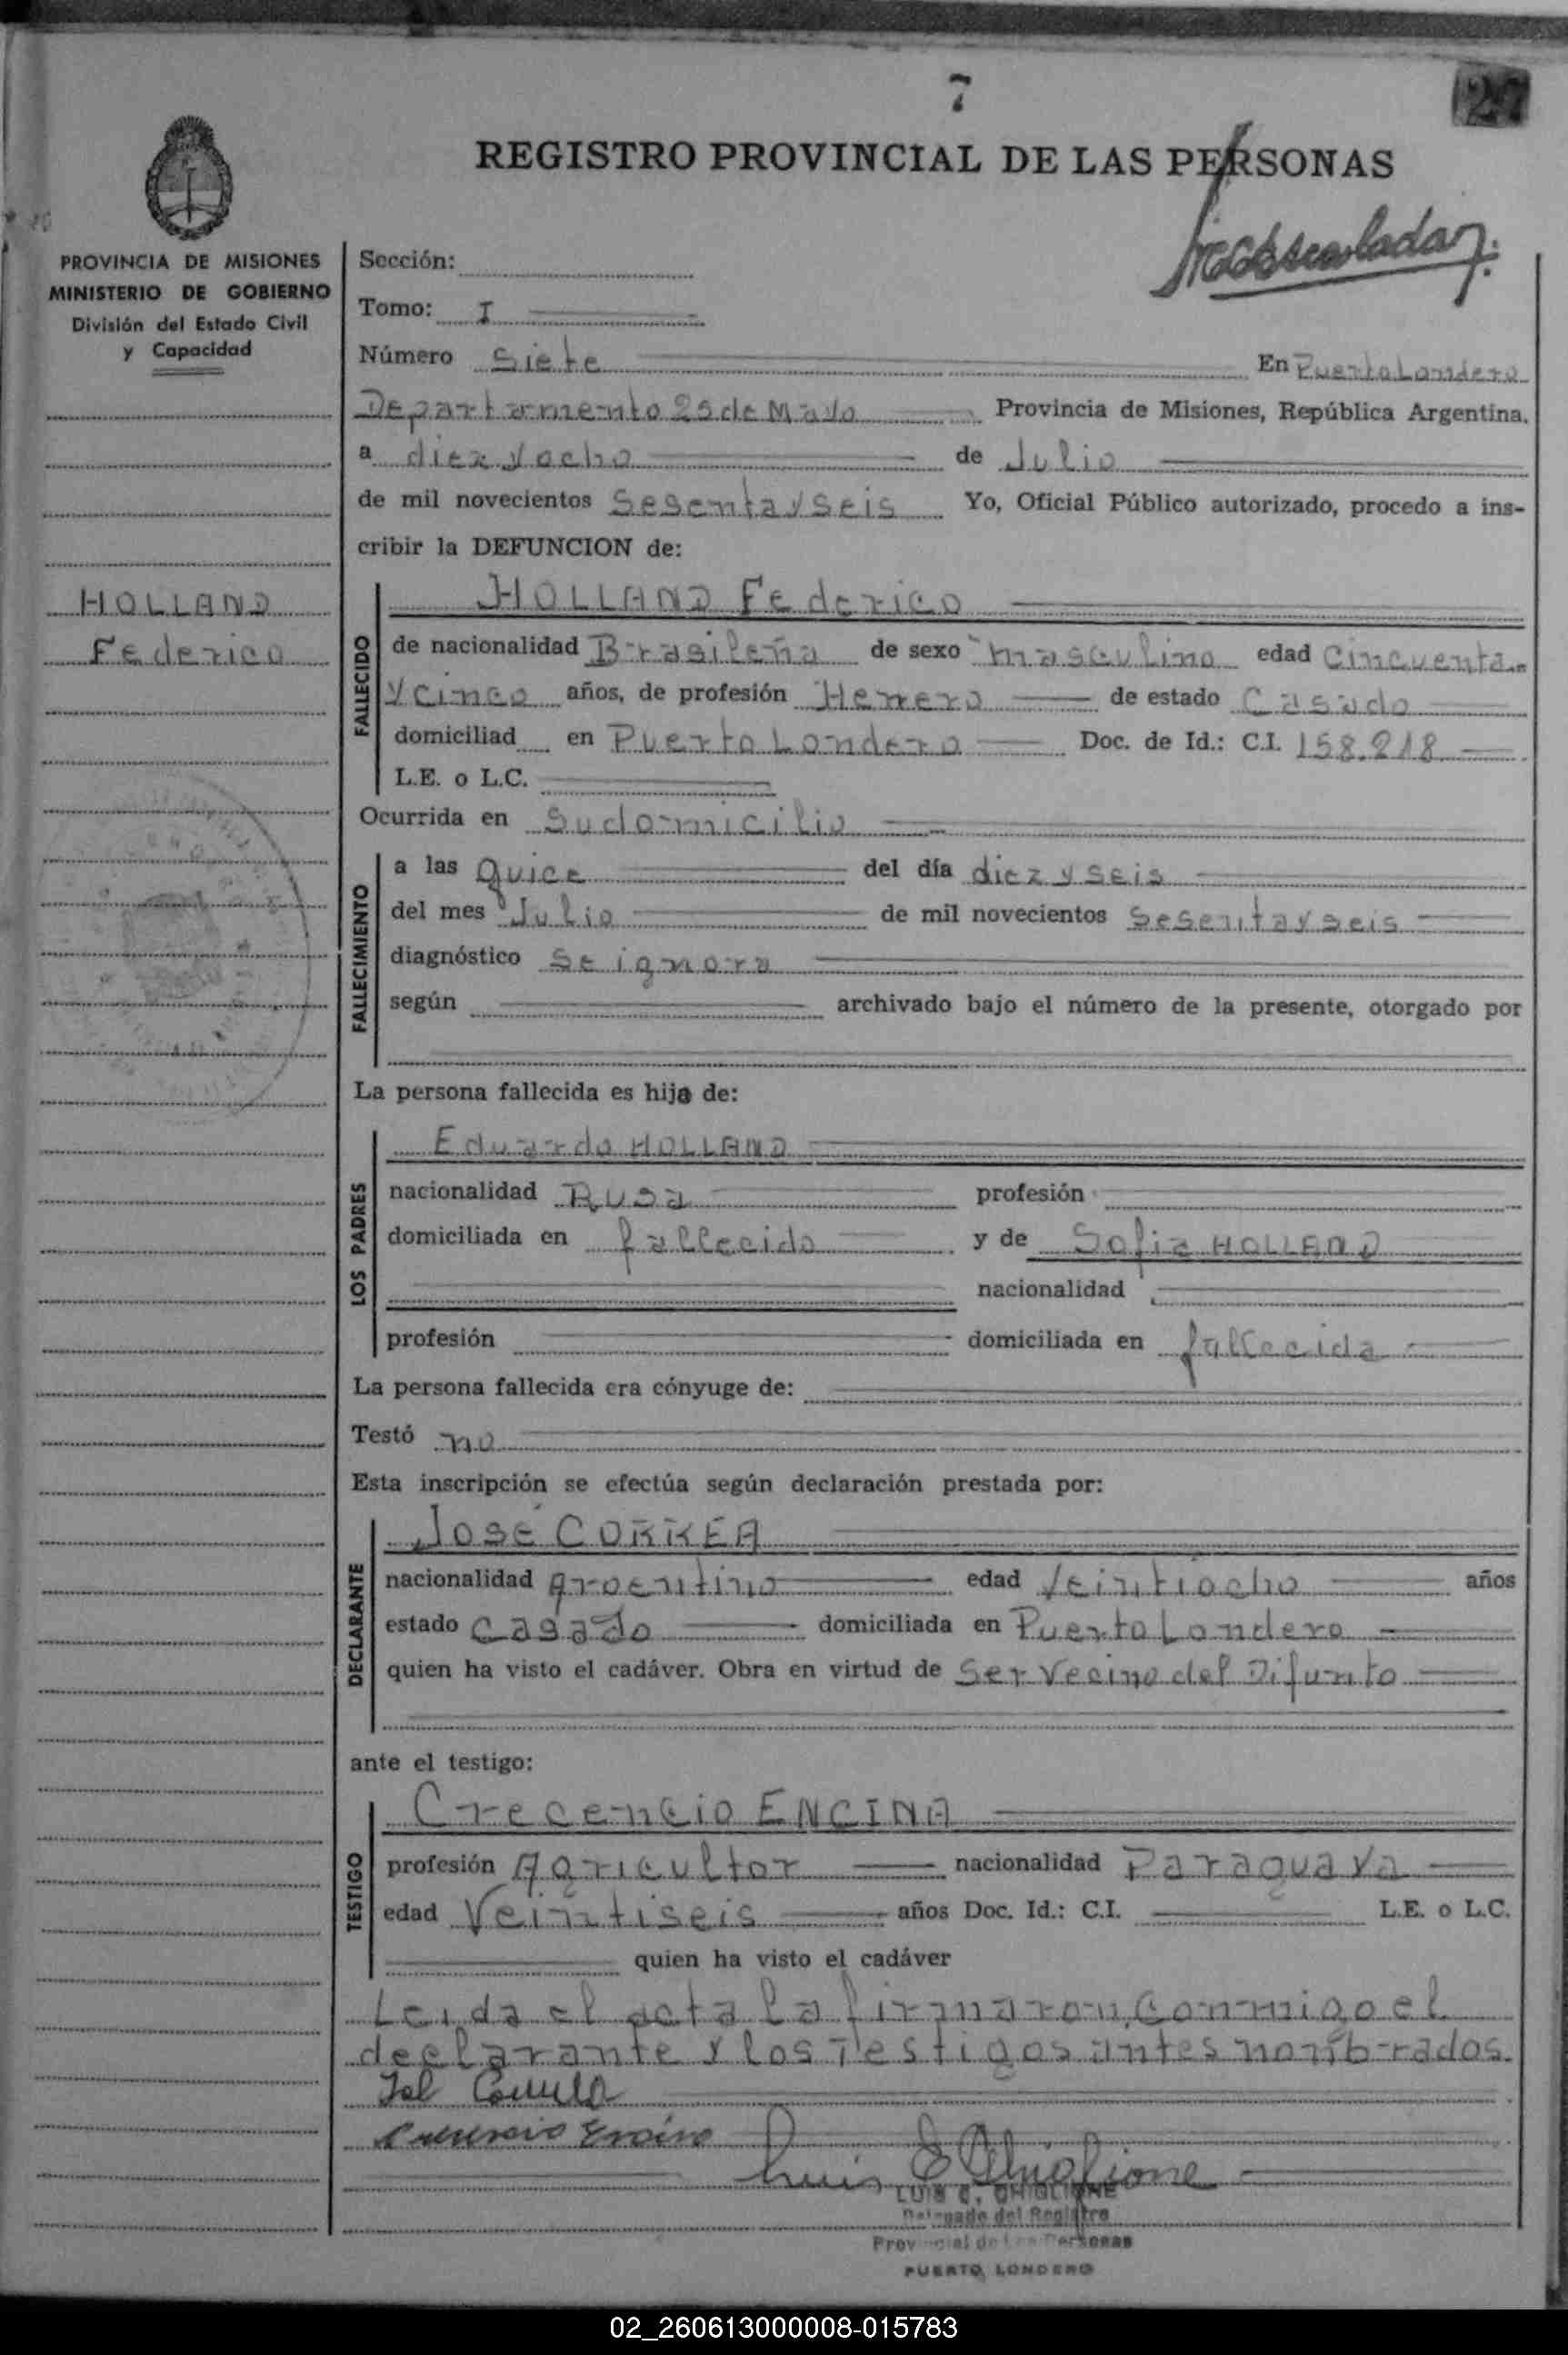 7
27
REGISTRO PROVINCIAL DE LAS PERSONAS
PROVINCIA DE MISIONES
MINISTERIO DE GOBIERNO
División del Estado Civil
y Capacidad
HOLLAND
Federico
Sección:
Tomo: I
Número Siete En Puerto Londero
Departamento 25 de Mayo Provincia de Misiones, República Argentina.
a diez y ocho de Julio
de mil novecientos Sesenta y seis Yo, Oficial Público autorizado, procedo a ins-
cribir la DEFUNCION de:
HOLLAND Federico
FALLECIDO
de nacionalidad Brasileña de sexo masculino edad Cincuenta
y cinco años, de profesión Herrero de estado Casado
domiciliad en Puerto Londero Doc. de Id.: C.I. 158.218
L.E. o L.C.
Ocurrida en Su domicilio
FALLECIMIENTO
a las Quice del día diez y seis
del mes Julio de mil novecientos Sesenta y seis
diagnóstico Se ignora
según archivado bajo el número de la presente, otorgado por
La persona fallecida es hijo de:
LOS PADRES
Eduardo HOLLAND
nacionalidad Rusa profesión
domiciliada en fallecido y de Sofia HOLLAND
nacionalidad
profesión domiciliada en fallecida
La persona fallecida era cónyuge de:
Testó no
Esta inscripción se efectúa según declaración prestada por:
DECLARANTE
José CORREA
nacionalidad Argentino edad Veintiocho años
estado Casado domiciliada en Puerto Londero
quien ha visto el cadáver. Obra en virtud de Ser Vecino del Difunto
ante el testigo:
TESTIGO
Crecencio ENCINA
profesión Agricultor nacionalidad Paraguaya
edad Veintiseis años Doc. Id.: C.I. L.E. o L.C.
quien ha visto el cadáver
Leida el acta la firmaron conmigo el
declarante y los Testigos antes nombrados.
Luis C. Ghiglione
LUIS C. GHIGLIONE
Delegado del Registro
Provincial de las Personas
PUERTO LONDERO
02_260613000008-015783